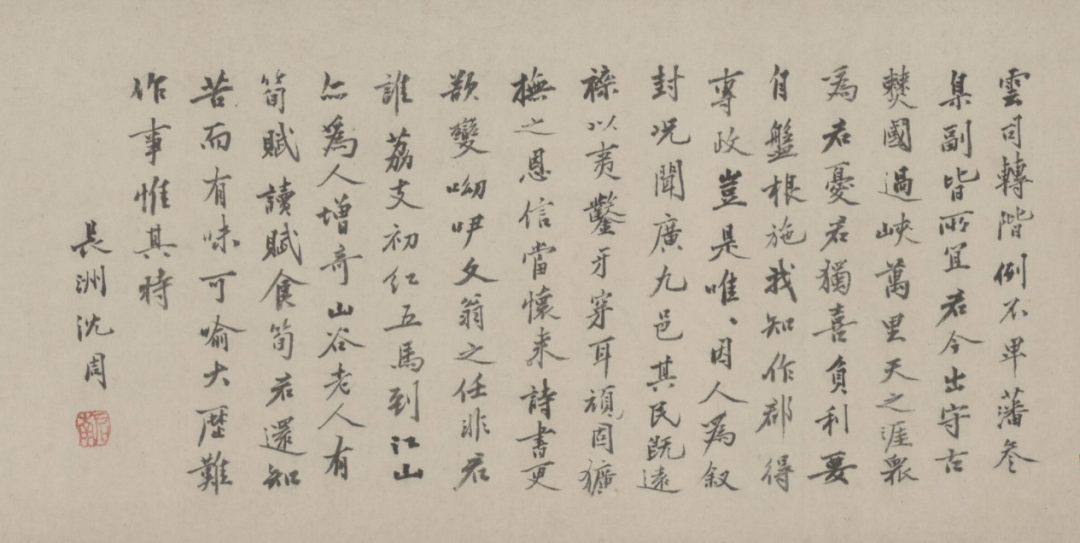 雲司轉階例不卑藩參
臬副皆所宜君今出守古
僰國過峽萬里天之涯衆
為君憂君獨喜負利要
自盤根施我知作郡得
專政豈是唯唯因人為叙
封況聞廣九邑其民既遠
襍以夷鑿牙穿耳頑固獷
撫之恩信當懷来詩書更
歘變呦咿文翁之任非君
誰荔支初紅五馬到江山
亦為人增奇山谷老人有
筍賦讀賦食筍君還知
苦而有味可喻大歴難
作事惟其時
長洲沈周